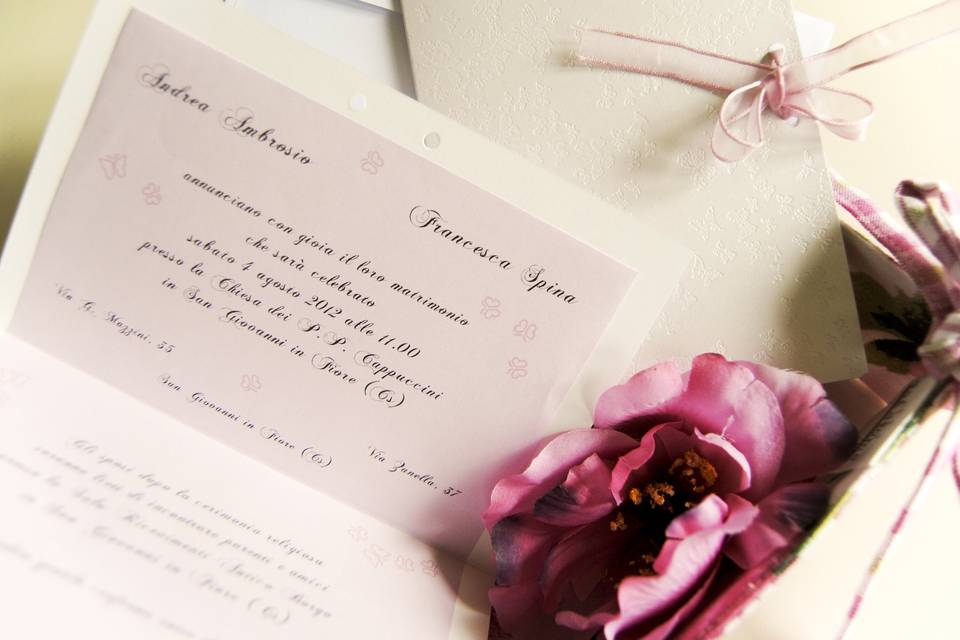 Andrea Ambrosio
Francesca Spina
annunciano con gioia il loro matrimonio
che sarà celebrato
sabato 4 agosto 2012 alle 11.00
presso la Chiesa dei P.P. Cappuccini
in San Giovanni in Fiore (Cs)
Via G. Mazzini, 35
San Giovanni in Fiore (Cs)
Via Zanella, 37
Gli sposi dopo la cerimonia religiosa
saranno lieti di incontrare parenti e amici
la Sala Ricevimenti Antico Borgo
in San Giovanni in Fiore (Cs)